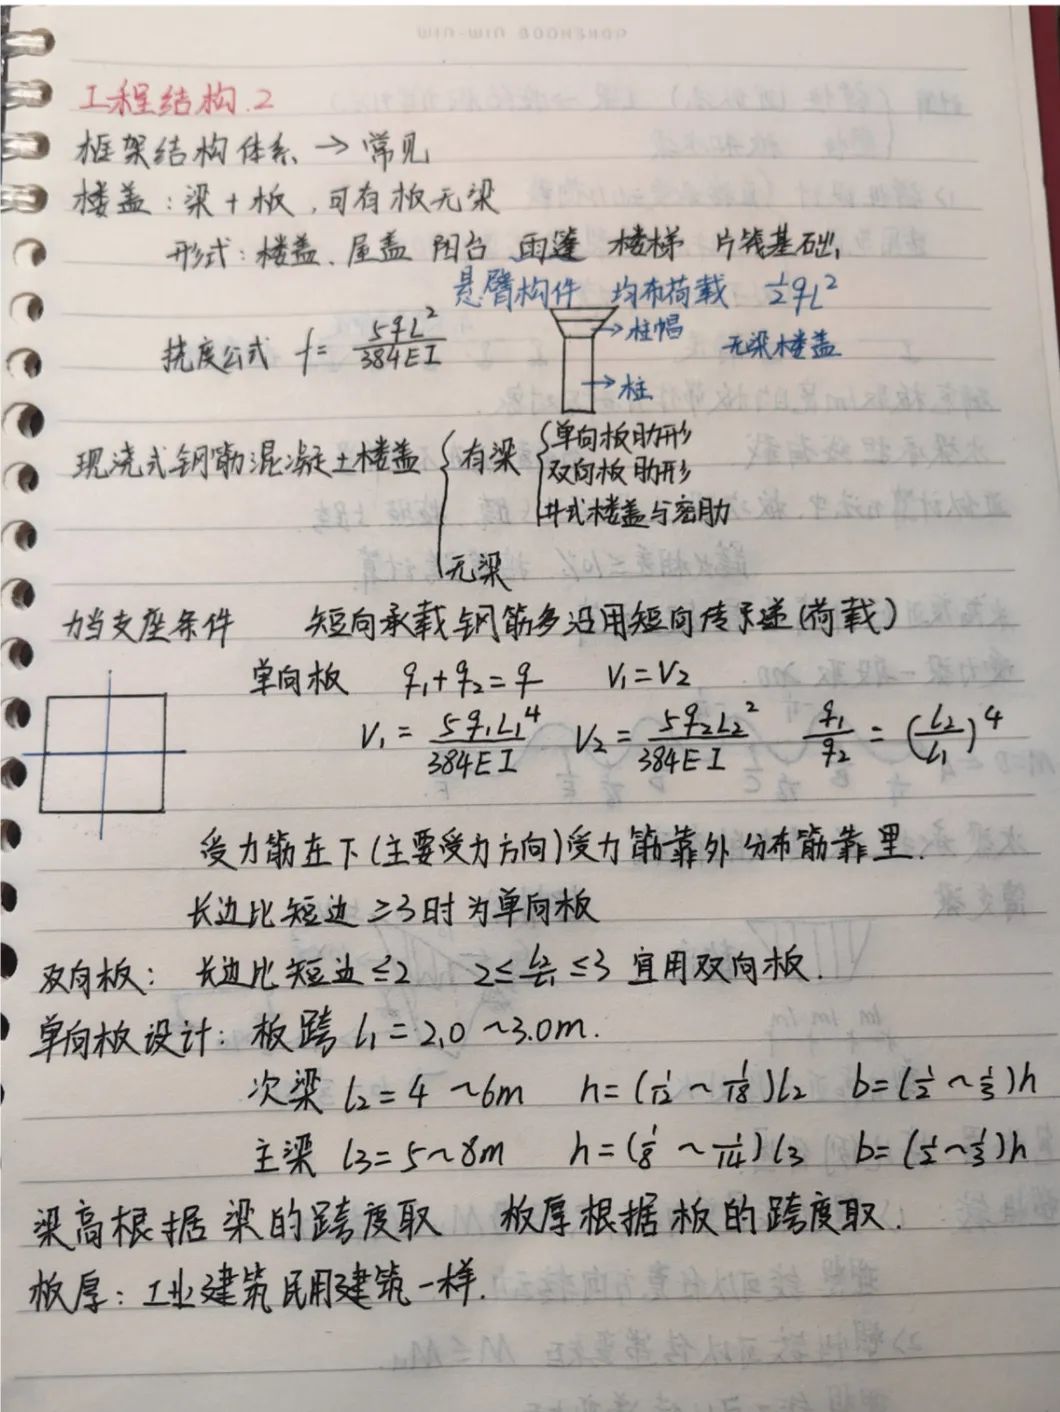 工程结构.2
框架结构体系 → 常见
楼盖：梁+板，可有板无梁
形式：楼盖、屋盖 阳台 雨篷 楼梯 片筏基础，
悬臂构件 均布荷载 ½qL²
挠度公式 f= 5qL²/384EI
柱帽 无梁楼盖
柱
现浇式钢筋混凝土楼盖 { 有梁 { 单向板肋形
双向板肋形
井式楼盖与密肋
无梁
当支座条件 短向承载钢筋多沿用短向传递(荷载)
单向板 q₁+q₂=q V₁=V₂
V₁= 5q₁L₁⁴/384EI V₂= 5q₂L₂²/384EI q₁/q₂ = (L₂/L₁)⁴
受力筋在下(主要受力方向)受力筋靠外 分布筋靠里.
长边比短边 ≥3时为单向板
双向板：长边比短边≤2 2≤ L₂/L₁ ≤3 宜用双向板.
单向板设计：板跨 l₁=2.0~3.0m.
次梁 l₂=4~6m h=(1/12~1/18)l₂ b=(1/2~1/3)h
主梁 l₃=5~8m h=(1/8~1/14)l₃ b=(1/2~1/3)h
梁高根据梁的跨度取 板厚根据板的跨度取.
板厚：工业建筑民用建筑一样.